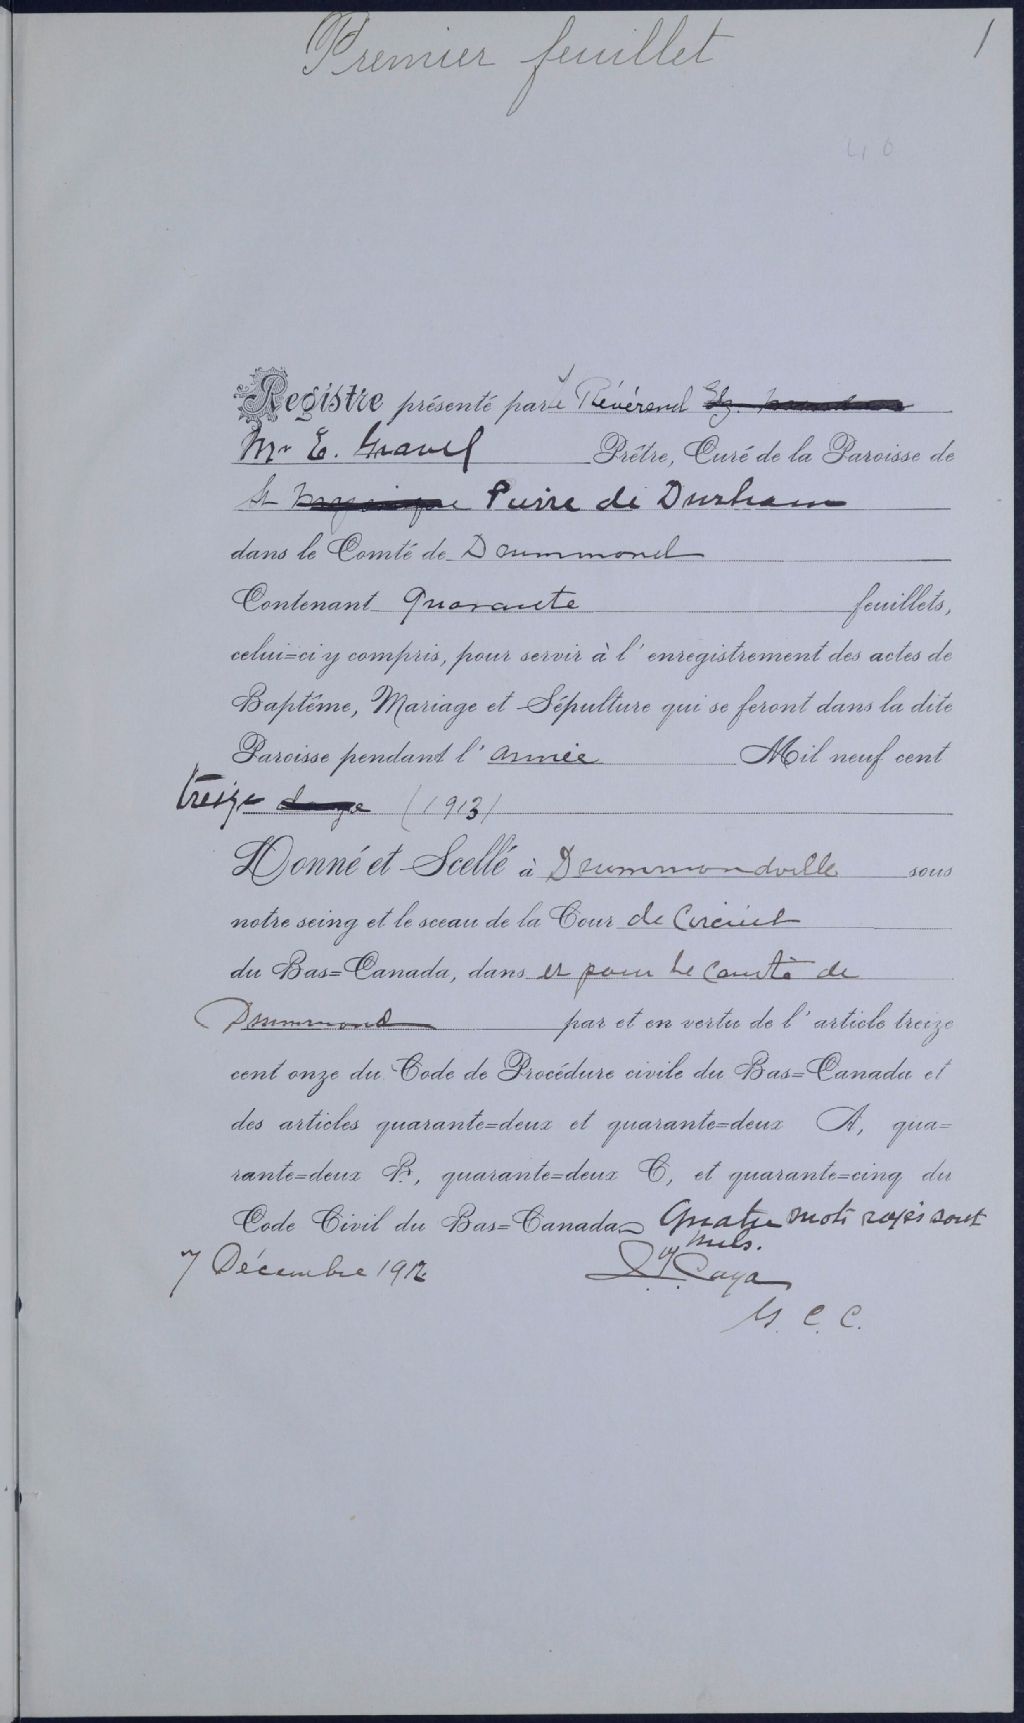 Premier feuillet
1
40
Registre présenté par le Révérend
Mr E. Gravel Prêtre, Curé de la Paroisse de
St Pierre de Durham
dans le Comté de Drummond
Contenant Quarante feuillets,
celui=ci y compris, pour servir à l'enregistrement des actes de
Baptême, Mariage et Sépulture qui se feront dans la dite
Paroisse pendant l'année Mil neuf cent
treize douze (1913)
Donné et Scellé à Drummondville sous
notre seing et le sceau de la Cour de Circuit
du Bas=Canada, dans et pour le Comté de
Drummond par et en vertu de l'article treize
cent onze du Code de Procédure civile du Bas=Canada et
des articles quarante=deux et quarante=deux A, qua=
rante=deux B, quarante=deux C, et quarante=cinq du
Code Civil du Bas=Canada Quatre mots rayés sont
nuls.
7 Décembre 1912 Caya
G. C. C.